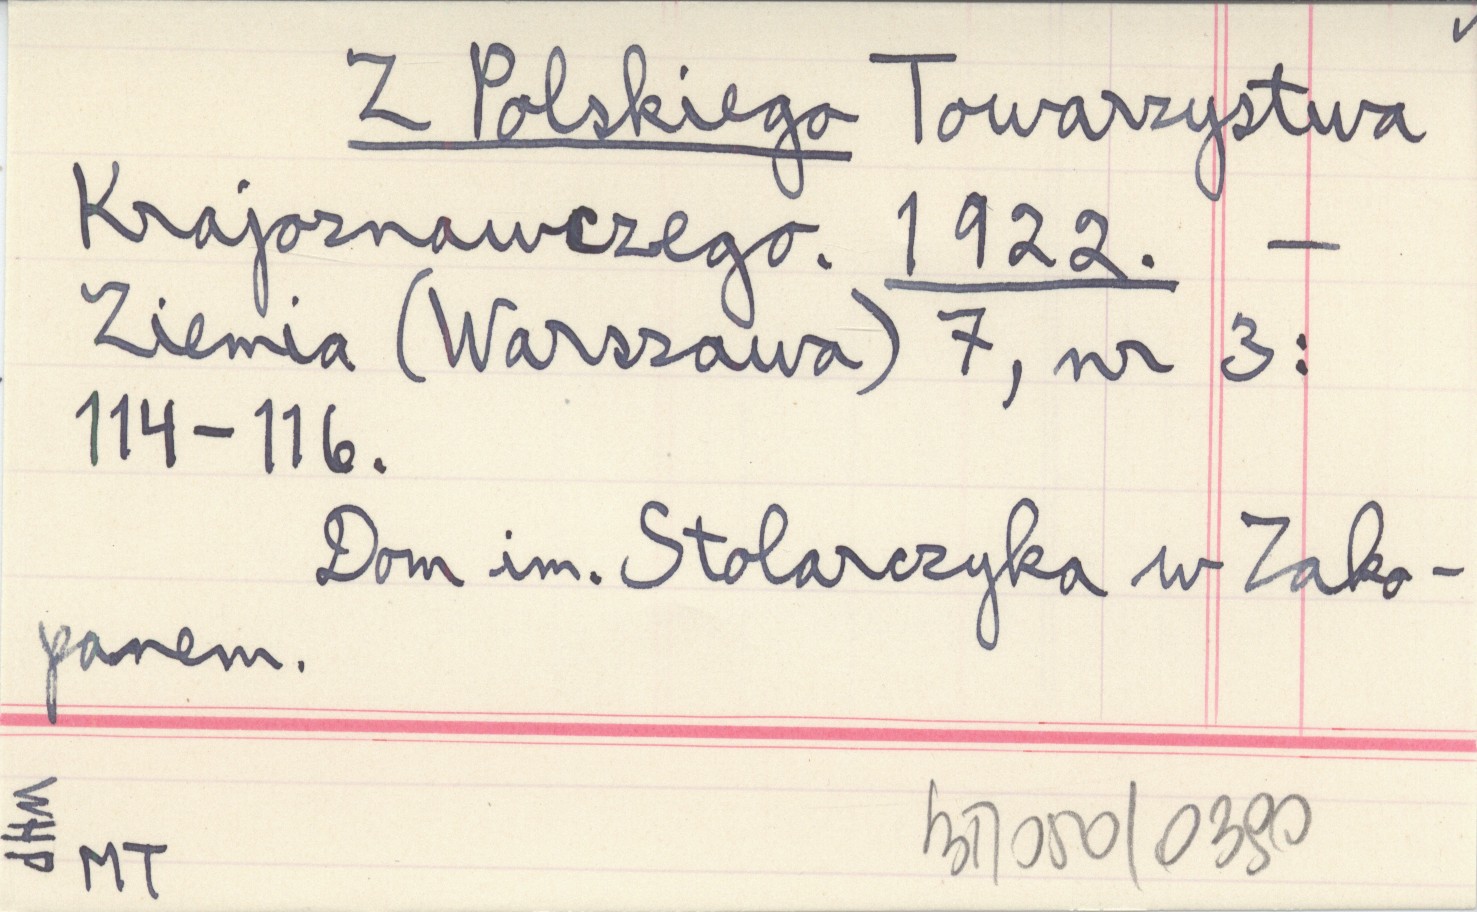 Z Polskiego Towarzystwa
Krajoznawczego. 1922. —
Ziemia (Warszawa) 7, nr 3:
114-116.
Dom im. Stolarczyka w Zako-
panem.
WHP
MT